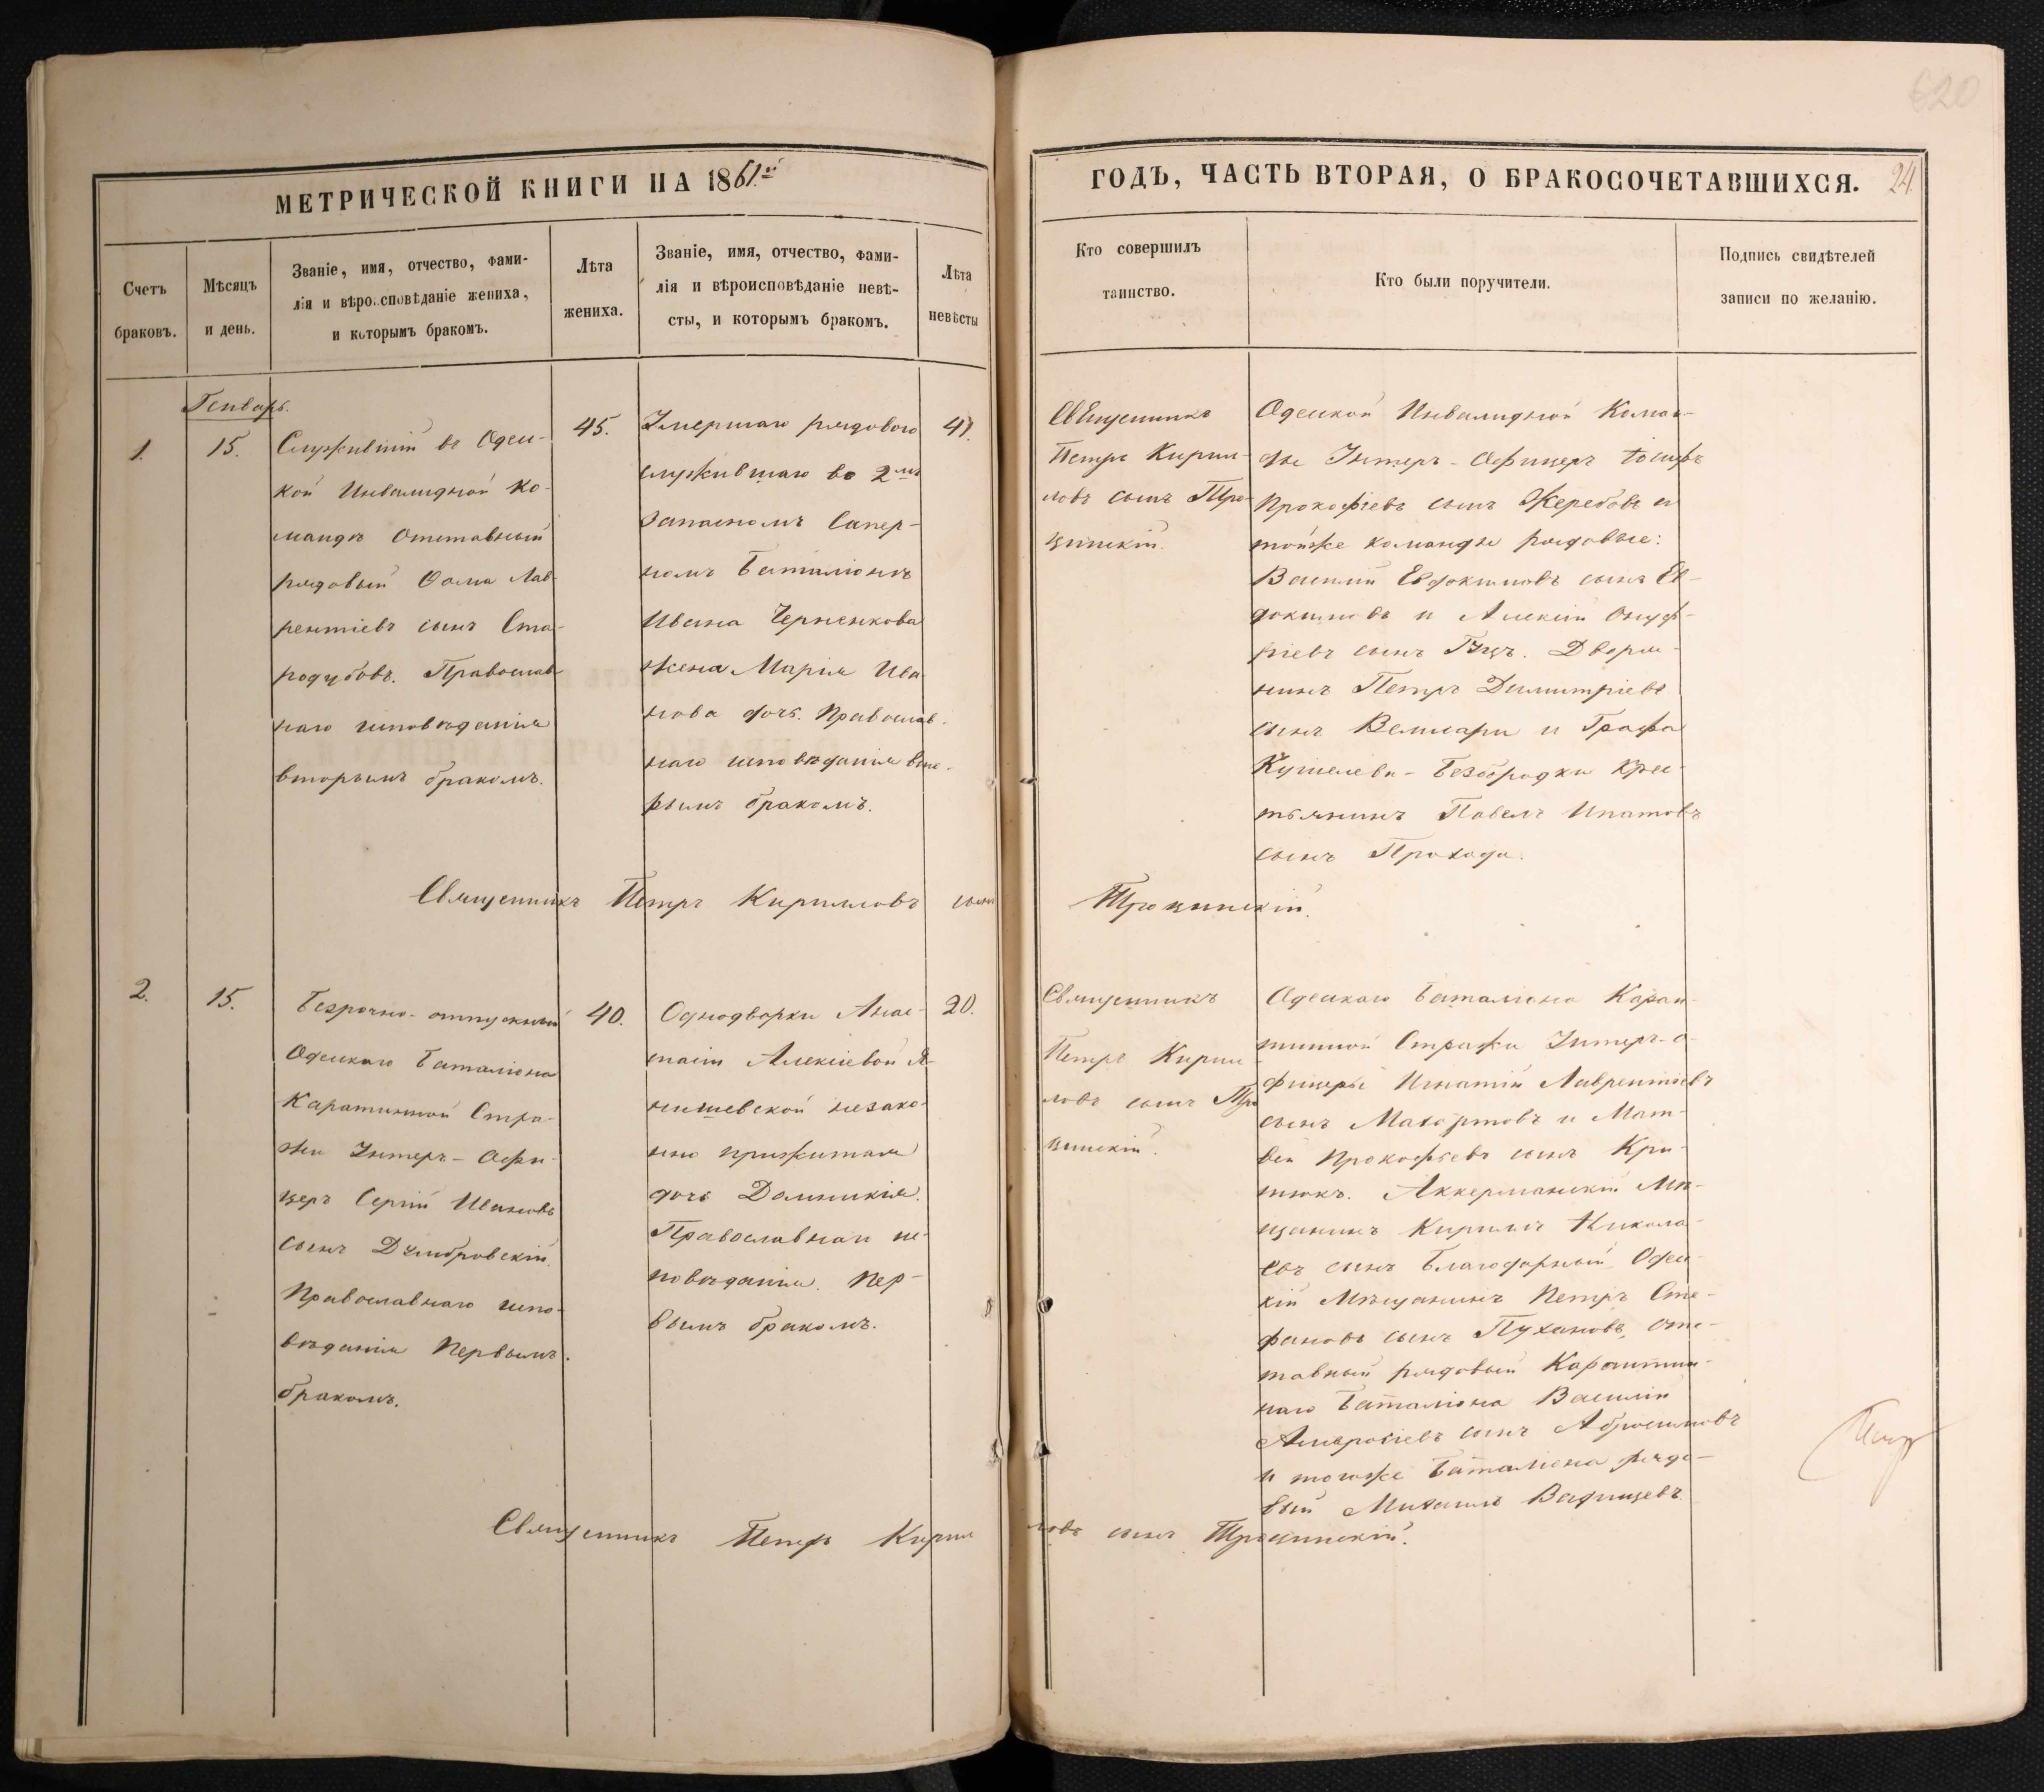 620
МЕТРИЧЕСКОЙ КНИГИ НА 1861й
ГОДЪ, ЧАСТЬ ВТОРАЯ, О БРАКОСОЧЕТАВШИХСЯ. 24.
Счетъ
браковъ.
Мѣсяцъ
и день.
Званіе, имя, отчество, фами-
лія и вѣроисповѣданіе жениха,
и которымъ бракомъ.
Лѣта
жениха.
Званіе, имя, отчество, фами-
лія и вѣроисповѣданіе невѣ-
сты, и которымъ бракомъ.
Лѣта
невѣсты
Кто совершилъ
таинство.
Кто были поручители.
Подпись свидѣтелей
записи по желанію.
Генварь.
1.
15.
Служившій въ Одес-
кой Инвалидной Ко-
мандѣ Отставный
рядовый Ѳома Лав-
рентіевъ сынъ Ста-
родубовъ. Православ-
наго исповѣданія
вторымъ бракомъ.
45.
Умершаго рядового
служившаго во 2мъ
Запасномъ Сапер-
номъ Баталіонѣ
Ивана Черненкова
жена Марія Ива-
нова дочь. Православ-
наго исповѣданія вто-
рымъ бракомъ.
41.
Священникъ
Петръ Кирил-
ловъ сынъ Тро-
цинскій.
Одеской Инвалидной Коман-
ды Унтеръ-Офицеръ Іосифъ
Прокофіевъ сынъ Жеребовъ и
тойже команды рядовые:
Василій Евдокимовъ сынъ Ев-
докимовъ и Алексій Онуф-
ріевъ сынъ Гуцъ. Дворя-
нинъ Петръ Димитріевъ
сынъ Велисари и Графа
Кушелева-Безбородки Крес-
тьянинъ Павелъ Ипатовъ
сынъ Прохода.
Священникъ Петръ Кирилловъ сынъ Троцинскій.
2.
15.
Безрочно-отпускный
Одескаго Баталіона
Карантинной Стра-
жи Унтеръ-Офи-
церъ Сергій Ивановъ
сынъ Думбровскій.
Православнаго испо-
вѣданія Первымъ
бракомъ.
40.
Однодворки Анас-
тасіи Алексіевой Я-
нишевской незако-
нно прижитая
дочь Домникія.
Православнаго ис-
повѣданія. Пер-
вымъ бракомъ.
20.
Священникъ
Петръ Кирил-
ловъ сынъ Тро-
цинскій.
Одескаго Баталіона Каран-
тинной Стражи Унтеръ-о-
фицеры Игнатій Лаврентіевъ
сынъ Махортовъ и Мат-
вей Прокофьевъ сынъ Кри-
тюкъ. Аккерманскій Мѣ-
щанинъ Кириллъ Никола-
евъ сынъ Благодарный Одес-
кій Мѣщанинъ Петръ Сте-
фановъ сынъ Пухановъ, отс-
тавный рядовый Карантин-
наго Баталіона Василій
Амвросіевъ сынъ Абросимовъ
и тогоже Баталіона рядо-
вый Михаилъ Вадницевъ.
Священникъ Петръ Кирилловъ сынъ Троцинскій.